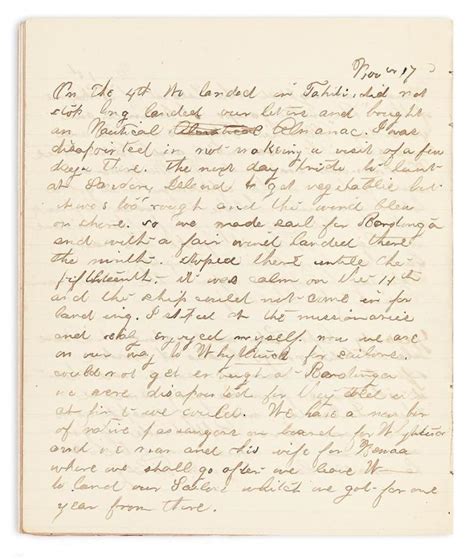 Nov 17
On the 4th We landed in Tahiti, did not
stop long landed our letters and bought
an Nautical Almanac. I was
disapointed in not making a visit of a few
days there. The next day tried to land
at Island to get vegetables but
it was too rough and the wind blew
on shore. so we made sail for Rarotonga
and with a fair wind landed there
the ninth. stoped there untill the
fifteenth. it was calm on the 11th
and the ship could not come in for
landing. I stoped at the missionaries
and injoyed myself. now we are
on our way to for sailors.
could not get enough at Rarotonga
we were disapointed for they told us
at first we could. We have a number
of native passengers on board for
and a man and his wife for
where we shall go after we leave W
to land our Sailors which we got for one
year from there.